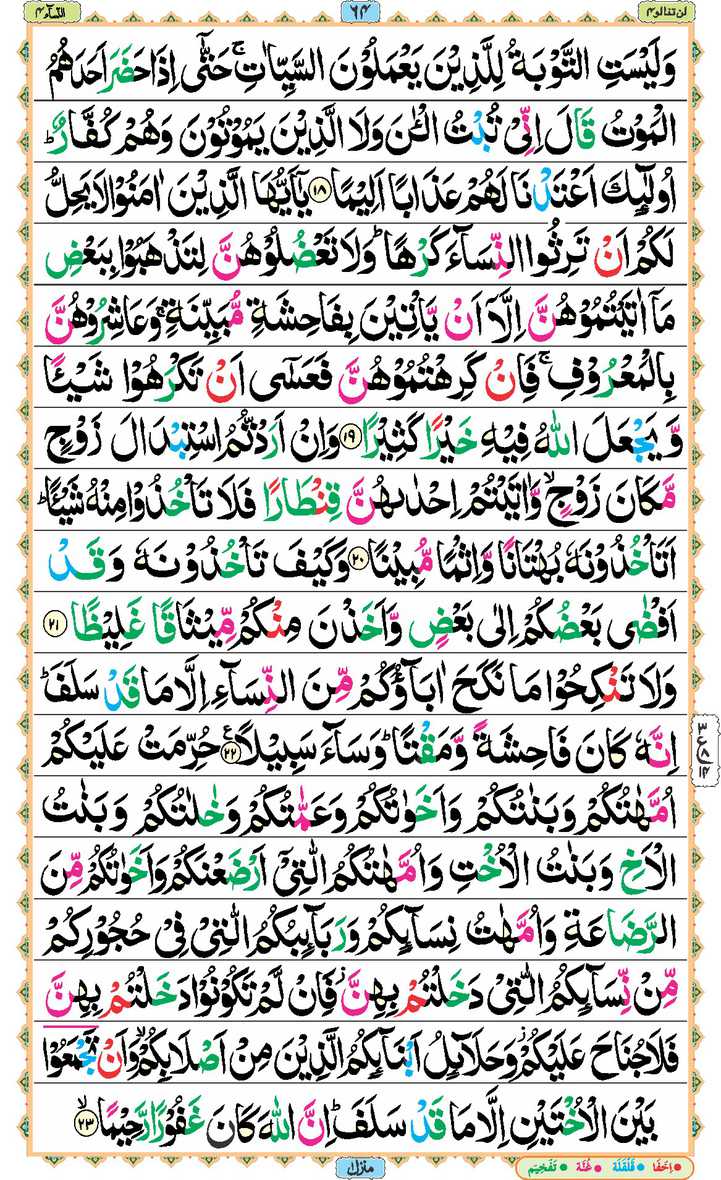 لن تنالوا ٤
٦٤
النسآء ٤
وَلَيْسَتِ التَّوْبَةُ لِلَّذِيْنَ يَعْمَلُوْنَ السَّيِّاٰتِ ۚ حَتّٰۤى اِذَا حَضَرَ اَحَدَهُمُ
الْمَوْتُ قَالَ اِنِّىْ تُبْتُ الْـٰٔنَ وَلَا الَّذِيْنَ يَمُوْتُوْنَ وَهُمْ كُفَّارٌ ؕ
اُولٰٓئِكَ اَعْتَدْنَا لَهُمْ عَذَابًا اَلِيْمًا ﴿۱۸﴾ يٰۤاَيُّهَا الَّذِيْنَ اٰمَنُوْا لَا يَحِلُّ
لَكُمْ اَنْ تَرِثُوا النِّسَآءَ كَرْهًا ؕ وَلَا تَعْضُلُوْهُنَّ لِتَذْهَبُوْا بِبَعْضِ
مَاۤ اٰتَيْتُمُوْهُنَّ اِلَّاۤ اَنْ يَّاْتِيْنَ بِفَاحِشَةٍ مُّبَيِّنَةٍ ۚ وَعَاشِرُوْهُنَّ
بِالْمَعْرُوْفِ ۚ فَاِنْ كَرِهْتُمُوْهُنَّ فَعَسٰۤى اَنْ تَكْرَهُوْا شَيْئًا
وَّيَجْعَلَ اللّٰهُ فِيْهِ خَيْرًا كَثِيْرًا ﴿۱۹﴾ وَاِنْ اَرَدْتُّمُ اسْتِبْدَالَ زَوْجٍ
مَّكَانَ زَوْجٍ ۙ وَّاٰتَيْتُمْ اِحْدٰىهُنَّ قِنْطَارًا فَلَا تَاْخُذُوْا مِنْهُ شَيْئًا ؕ
اَتَاْخُذُوْنَهٗ بُهْتَانًا وَّاِثْمًا مُّبِيْنًا ﴿۲۰﴾ وَكَيْفَ تَاْخُذُوْنَهٗ وَقَدْ
اَفْضٰى بَعْضُكُمْ اِلٰى بَعْضٍ وَّاَخَذْنَ مِنْكُمْ مِّيْثَاقًا غَلِيْظًا ﴿۲۱﴾
وَلَا تَنْكِحُوْا مَا نَكَحَ اٰبَآؤُكُمْ مِّنَ النِّسَآءِ اِلَّا مَا قَدْ سَلَفَ ؕ
اِنَّهٗ كَانَ فَاحِشَةً وَّمَقْتًا ؕ وَسَآءَ سَبِيْلًا ﴿۲۲﴾ حُرِّمَتْ عَلَيْكُمْ
اُمَّهٰتُكُمْ وَبَنٰتُكُمْ وَاَخَوٰتُكُمْ وَعَمّٰتُكُمْ وَخٰلٰتُكُمْ وَبَنٰتُ
الْاَخِ وَبَنٰتُ الْاُخْتِ وَاُمَّهٰتُكُمُ الّٰتِىْۤ اَرْضَعْنَكُمْ وَاَخَوٰتُكُمْ مِّنَ
الرَّضَاعَةِ وَاُمَّهٰتُ نِسَآئِكُمْ وَرَبَآئِبُكُمُ الّٰتِىْ فِىْ حُجُوْرِكُمْ
مِّنْ نِّسَآئِكُمُ الّٰتِىْ دَخَلْتُمْ بِهِنَّ ؗ فَاِنْ لَّمْ تَكُوْنُوْا دَخَلْتُمْ بِهِنَّ
فَلَا جُنَاحَ عَلَيْكُمْ ؗ وَحَلَآئِلُ اَبْنَآئِكُمُ الَّذِيْنَ مِنْ اَصْلَابِكُمْ ۙ وَاَنْ تَجْمَعُوْا
بَيْنَ الْاُخْتَيْنِ اِلَّا مَا قَدْ سَلَفَ ؕ اِنَّ اللّٰهَ كَانَ غَفُوْرًا رَّحِيْمًا ﴿۲۳﴾ ۙ
منزل ١
اِخْفَا قَلْقَلَة غُنَّة تَفْخِيْم